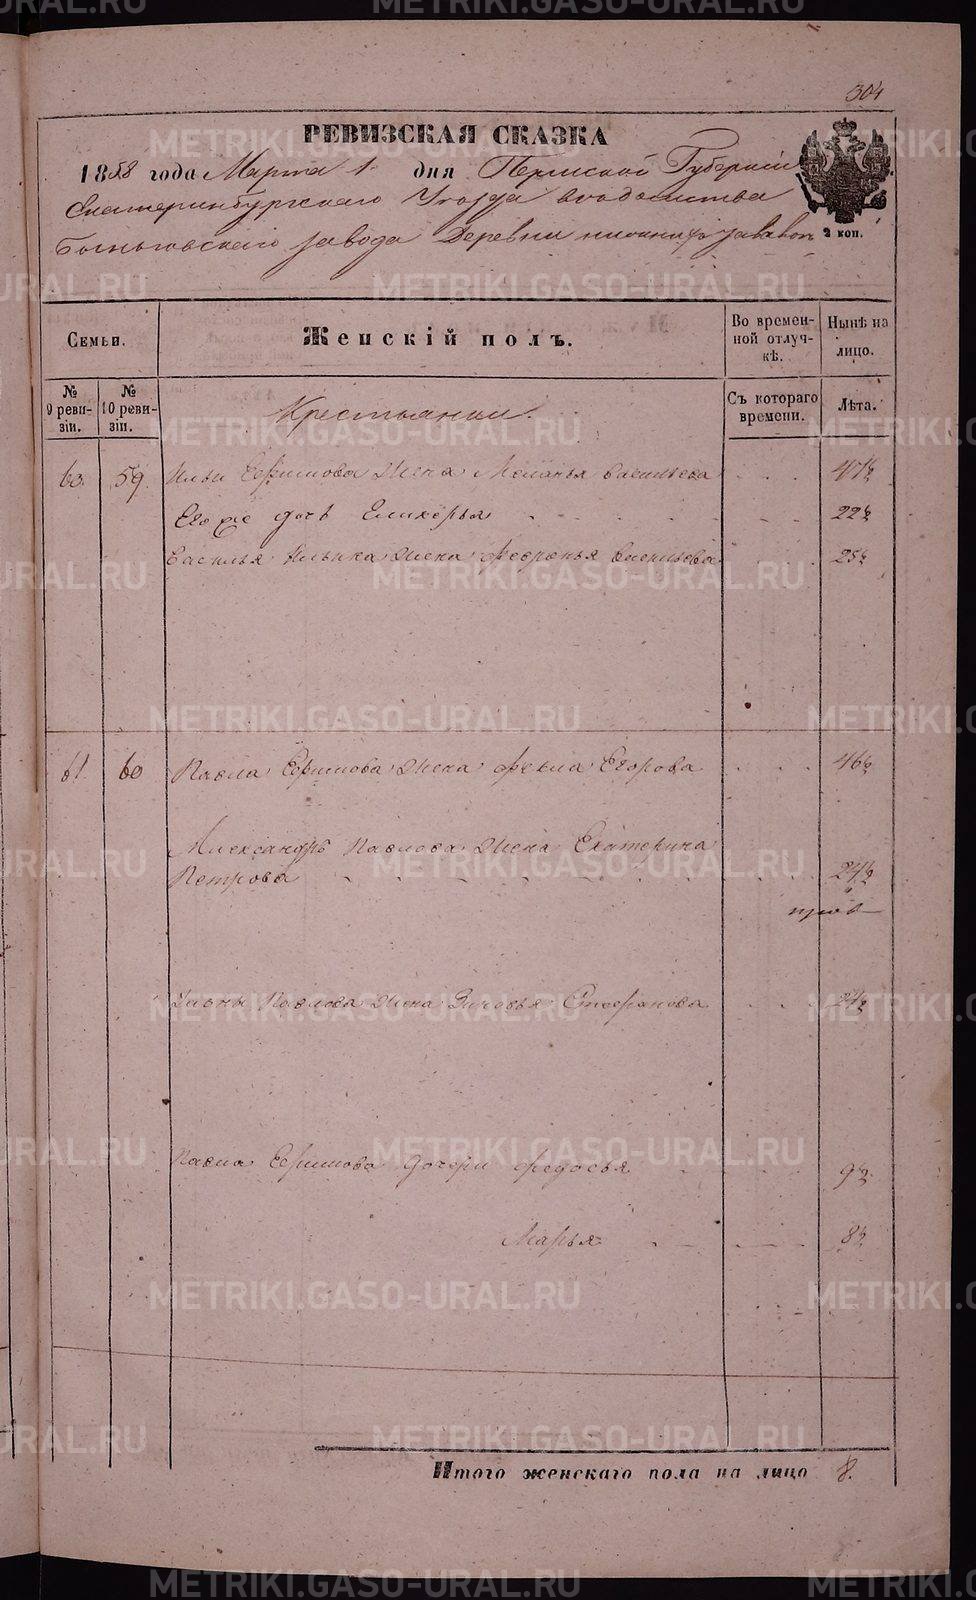 304
РЕВИЗСКАЯ СКАЗКА
1858 года Марта 1 дня Пермской Губерніи
Екатеринбургскаго Уезда ведомства
завода Деревни
2 коп.
Семьи.
Женскій полъ.
Во времен-
ной отлуч-
кѣ.
Нынѣ на
лицо.
№
9 реви-
зіи.
№
10 реви-
зіи.
Съ котораго
времени.
Лѣта.
Крестьянки
60. 59. Ильи Ефимова жена Меланья Васильева 47½
Его же дочь Гликерья 22½
Василья Ильина жена Февронья Васильева 25½
61. 60 Павла Ефимова жена Фекла Егорова 46½
Александръ Павлова жена Екатерина
Петрова 24½
Павлова жена Зиновья Стефанова 24½
Павла Ефимова дочери Федосья 9½
Марья 8½
Итого женскаго пола на лицо 8.
METRIKI.GASO-URAL.RU